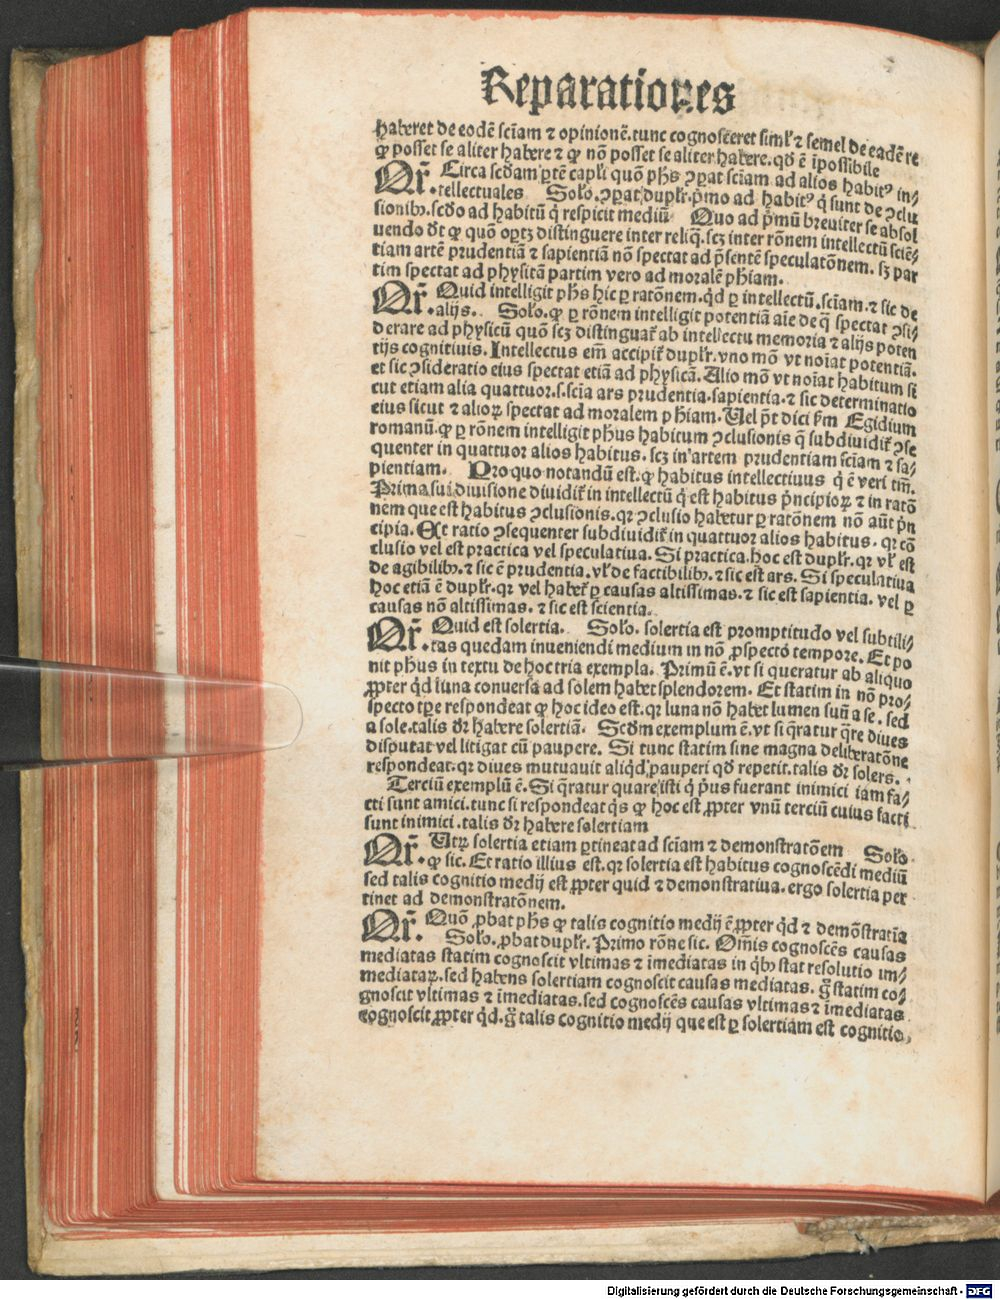 Reparationes
haberet de eodē sciam ⁊ opinionē.tunc cognosceret siml' ⁊ semel de eadē re
ꝙ posset se aliter habere ⁊ ꝙ nō posset se aliter habere.qd̄ ē īpossibile
Qr̄. Circa scd̄am ꝑtē capl'i quō ph̄s ꝯꝑat sciam ad alios habitꝰ in⸗
tellectuales Solo. ꝯꝑat dupl'r.p̄mo ad habitꝰ q̇ sunt de ꝯclu
sionibꝫ.scd̄o ad habitū q̇ respicit mediū Quo ad p̄mū breuiter se absol
uendo d̄t ꝙ quō optꝫ distinguere inter reliq̄.scꝫ inter rōnem intellectū sciē⸗
tiam artē prudentiā ⁊ sapientiā nō spectat ad p̄sentē speculatōnem. sꝫ par
tim spectat ad physicā partim vero ad moralē ph̄iam.
Qr̄. Quid intelligit ph̄s hic ꝑ ratōnem.q̇d ꝑ intellectū.sciam.⁊ sic de
alijs. Solo.ꝙ ꝑ rōnem intelligit potentiā aīe de q̄ spectat ꝯsi⸗
derare ad physicū quō scꝫ distinguat̄ ab intellectu memoria ⁊ alijs poten
tijs cognitiuis. Intellectus em̄ accipit̄ dupl'r.vno mō vt noīat potentiā.
et sic ꝯsideratio eius spectat etiā ad physicā. Alio mō vt noīat habitum si
cut etiam alia quattuor.s.scia ars prudentia.sapientia.⁊ sic determinatio
eius sicut ⁊ alioꝝ spectat ad moralem ph̄iam. Uel p̄t dici ẜm Egidium
romanū.ꝙ ꝑ rōnem intelligit ph̄us habitum ꝯclusionis q̄ subdiuidit̄ ꝯse
quenter in quattuor alios habitus.scꝫ in artem prudentiam sciam ⁊ sa⸗
pientiam. Pro quo notandū est.ꝙ habitus intellectiuus q̇ ē veri tm̄.
Prima sui diuisione diuidit̄ in intellectū q̇ est habitus p̄ncipioꝝ ⁊ in ratō
nem que est habitus ꝯclusionis.qr ꝯclusio habetur ꝑ ratōnem nō aūt p̄n
cipia. Et ratio ꝯsequenter subdiuidit̄ in quattuor alios habitus. qr cō
clusio vel est practica vel speculatiua. Si practica.hoc est dupl'r.qr vl' est
de agibilibꝫ.⁊ sic ē prudentia.vl' de factibilibꝫ.⁊ sic est ars. Si speculatiua
hoc etiā ē dupl'r.qr vel habet̄ ꝑ causas altissimas.⁊ sic est sapientia. vel ꝑ
causas nō altissimas. ⁊ sic est scientia.
Qr̄. Quid est solertia. Solo. solertia est promptitudo vel subtili⸗
tas quedam inueniendi medium in nō ꝓspecto tempore. Et po
nit ph̄us in textu de hoc tria exempla. Primū ē.vt si queratur ab aliquo
ꝓpter q̇d luna conuersa ad solem habet splendorem. Et statim in nō pro⸗
specto tp̄e respondeat ꝙ hoc ideo est.qr luna nō habet lumen suū a se. sed
a sole.talis dr̄ habere solertiā. Scd̄m exemplum ē.vt si q̄ratur q̄re diues
disputat vel litigat cū paupere. Si tunc statim sine magna deliberatōne
respondeat.qr diues mutuauit aliq̇d pauperi qd̄ repetit.talis dr̄ solers.
Terciū exemplū ē. Si q̄ratur quare isti q̇ p̄us fuerant inimici iam fa⸗
cti sunt amici.tunc si respondeat q̇s ꝙ hoc est ꝓpter vnū terciū cuius facti
sunt inimici.talis dr̄ habere solertiam
Qr̄. Utꝝ solertia etiam ꝑtineat ad sciam ⁊ demonstratōem Solo.
ꝙ sic. Et ratio illius est.qr solertia est habitus cognoscēdi mediū
sed talis cognitio medij est ꝓpter quid ⁊ demonstratiua.ergo solertia per
tinet ad demonstratōnem.
Qr̄. Quō ꝓbat ph̄s ꝙ talis cognitio medij ē ꝓpter q̇d ⁊ demōstratīa
Solo.ꝓbat dupl'r. Primo rōne sic. Om̄is cognoscēs causas
mediatas statim cognoscit vltimas ⁊ īmediatas in q̇bꝫ stat resolutio im⸗
mediataꝝ.sed habens solertiam cognoscit causas mediatas. g̊ statim co⸗
gnoscit vltimas ⁊ īmediatas.sed cognoscēs causas vltimas ⁊ īmediatas
cognoscit ꝓpter q̇d.g̊ talis cognitio medij que est ꝑ solertiam est cognitio
Digitalisierung gefördert durch die Deutsche Forschungsgemeinschaft - DFG